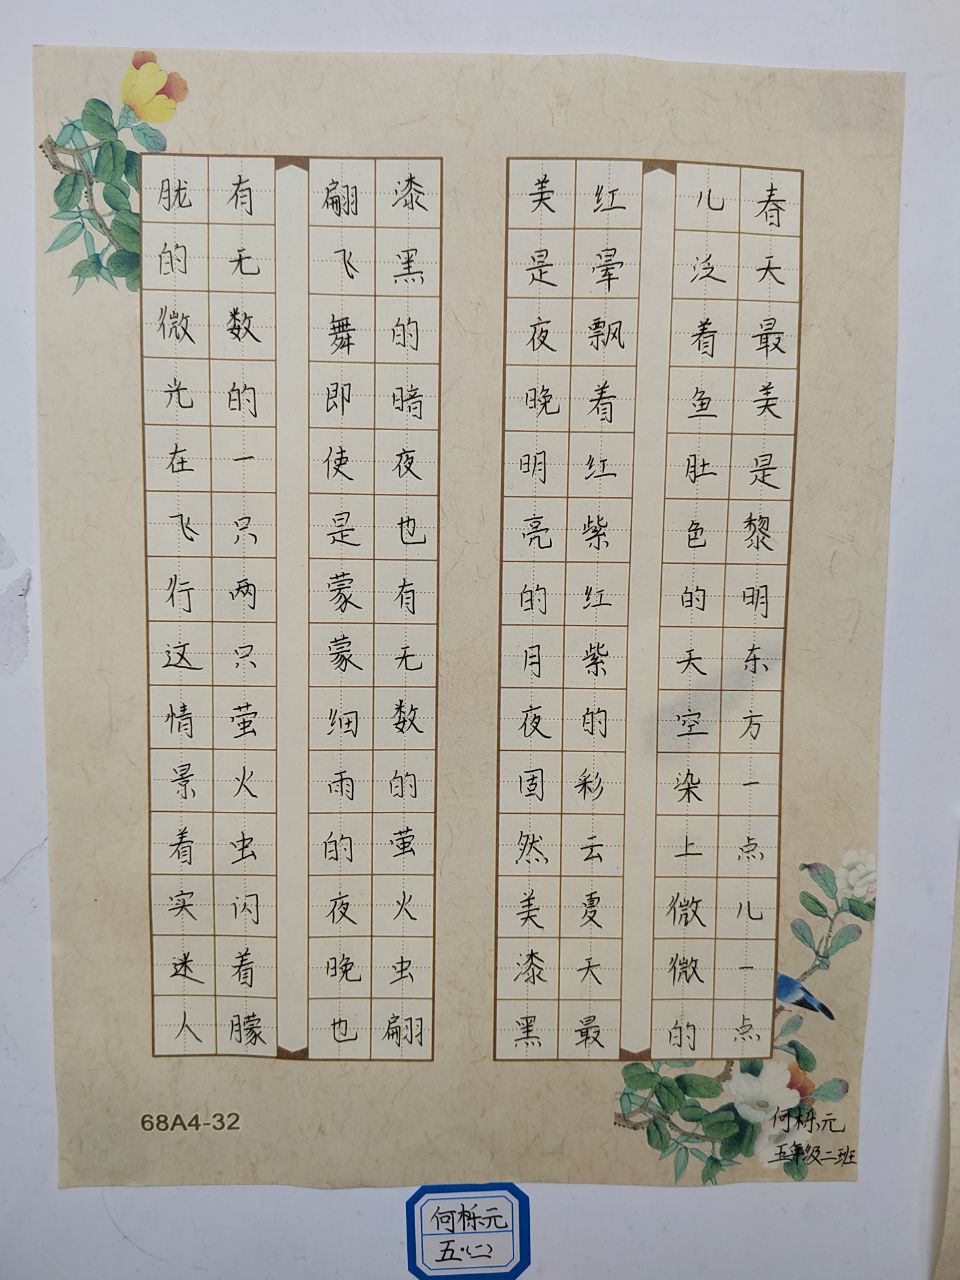 春天最美是黎明东方一点儿一点
儿泛着鱼肚色的天空染上微微的
红晕飘着红紫红紫的彩云夏天最
美是夜晚明亮的月夜固然美漆黑
漆黑的暗夜也有无数的萤火虫翩
翩飞舞即使是蒙蒙细雨的夜晚也
有无数的一只两只萤火虫闪着朦
胧的微光在飞行这情景着实迷人
68A4-32
何栎元
五年级二班
何栎元
五·(二)